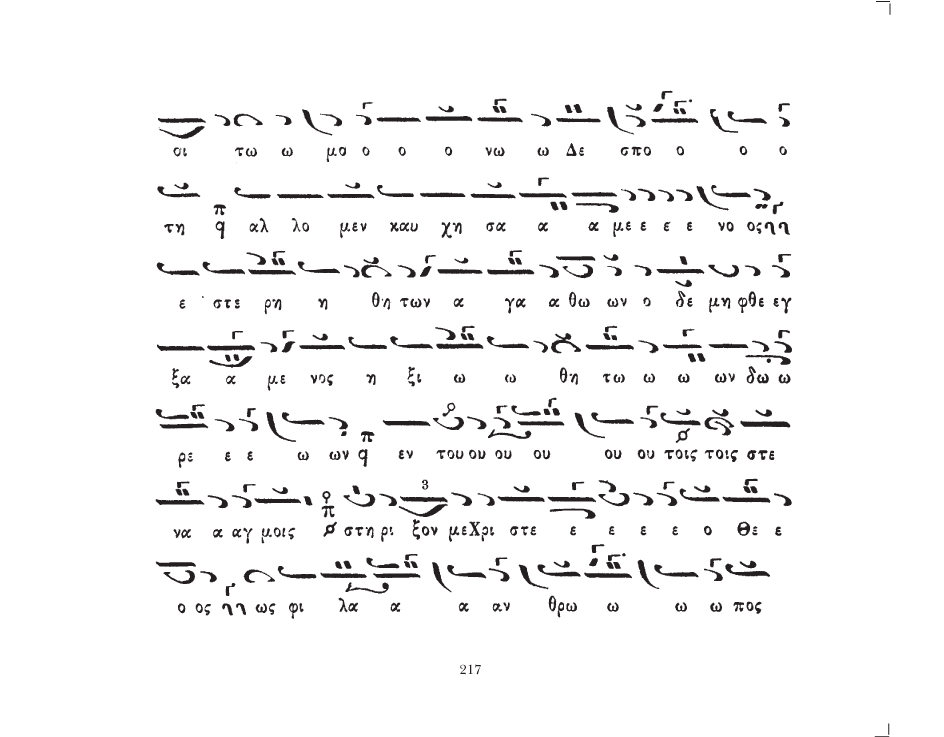 σι τω ω μο ο ο ο νω ω Δε σπο ο ο ο
τη π q αλ λο μεν καυ χη σα α α με ε ε ε νο ος
ε στε ρη η θη των α γα α θω ων ο δε μη φθε εγ
ξα α με νος η ξι ω ω θη τω ω ω ων δω ω
ρε ε ε ω ων π q εν του ου ου ου ου ου τοις τοις στε
3
να α αγ μοις π στη ρι ξον με Χρι στε ε ε ε ε ο Θε ε
ο ος ως φι λα α α αν θρω ω ω ω πος
217